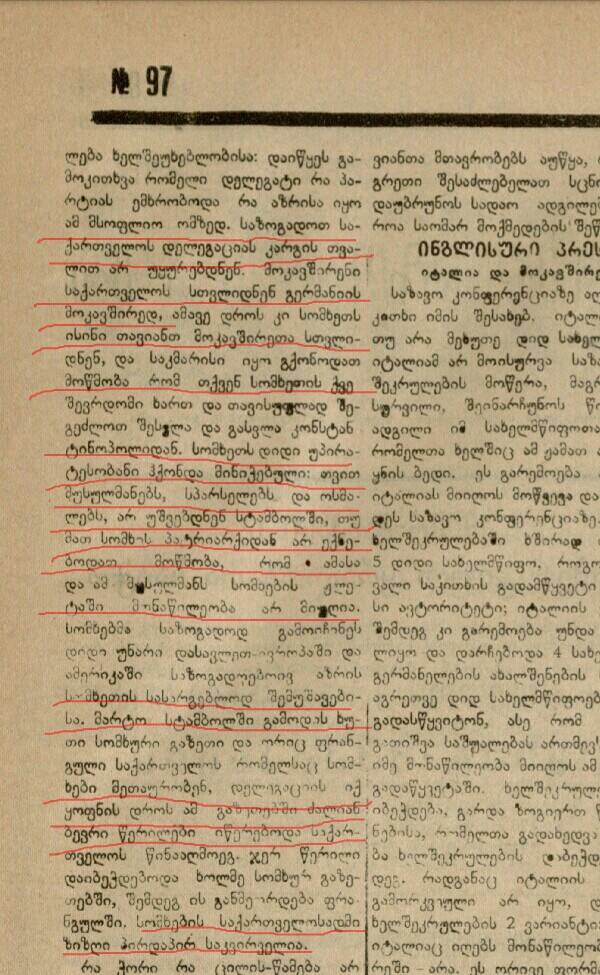 № 97
ლება ხელშეუხებლობისა: დაიწყეს გა-
მოკითხვა რომელი დელეგატი რა პა-
რტიას ემხრობოდა რა აზრისა იყო
ამ მსოფლიო ომზედ. საზოგადოთ სა-
ქართველოს დელეგაციას კარგის თვა-
ლით არ უყურებდნენ. მოკავშირენი
საქართველოს სთვლიდნენ გერმანიის
მოკავშირედ, ამავე დროს კი სომხეთს
ისინი თავიანთ მოკავშირეთა სთვლი-
დნენ, და საკმარისი იყო გქონოდათ
მოწმობა რომ თქვენ სომხეთის ქვე
შევრდომი ხართ და თავისუფლად შე-
გეძლოთ შესვლა და გასვლა კონსტან
ტინოპოლიდან. სომხეთს დიდი უპირა-
ტესობანი ჰქონდა მინიჭებული: თვით
მუსულმანებს, სპარსელებს და ოსმა-
ლებს, არ უშვებდნენ სტამბოლში, თუ
მათ სომხის პატრიარქიდან არ ექნე-
ბოდათ მოწმობა, რომ ამასა
და ამ მუსულმანს სომხების ჟლე-
ტაში მონაწილეობა არ მიუღია.
სომხებმა საზოგადოდ გამოიჩინეს
დიდი უნარი დასავლეთ-ევროპაში და
ამერიკაში საზოგადოებოივ აზრის
სომხეთის სასარგებლოდ შემუშავები-
სა. მარტო სტამბოლში გამოდის ხუ-
თი სომხური გაზეთი და ორიც ფრან-
გული საქართველოს რომელსაც სომ-
ხები მეთაურობენ, დელეგაციის იქ
ყოფნის დროს ამ გაზეთებში ძალიან
ბევრი წერილები იწერებოდა საქარ-
თველოს წინააღმდეგ. ჯერ წერილი
დაიბეჭდებოდა ხოლმე სომხურ გაზე-
თებში, შემდეგ ის განმეორდება ფრა-
ნგულში. სომხების საქართველოსადმი
ზიზღი პირდაპირ საკვირველია.
რა ჭორი რა ცილის-წამება არ
ვიანთა მთავრობებს აუწყა,
გრეთი შესაძლებელათ სცნო
დაუბრუნოს სადაო ადგილები
როა საომარ მოქმედების შეწ
ინგლისური პრეს
იტალია და მოკავშირე
საზავო კონფერენციაზე აღ
კითხი იმის შესახებ. იტალ
თუ არა მეხუთე დიდ სახელ
იტალიამ არ მოისურვა საზა
შეკრულების მოწერა, მაგრ
სურვილი, შეინარჩუნოს წი
ადგილი იმ სახელმწიფოთა
რომელთა ხელშიც ამ ჟამათ ა
ყნის ბედი. ეს გარემოება
იტალიას მიიღოს მოწვევა და
დეს საზავო კონფერენციაზე.
ხელშეკრულებაში ხშირად
5 დიდი სახელმწიფო. როგო
ვალი საკითხის გადამწყვეტი
სი ავტორიტეტი; იტალიის
შემდეგ კი გარემოება უნდა
ლიყო და დარჩებოდა 4 სახე
გერმანელების ახალშენების
აგრეთვე დიდ სახელმწიფოებ
გადასწყვიტონ, ასე რომ
გათიშვა საშუალებას ართმევ
იმე მონაწილეობა მიიღოს ამ
გადაწყვეტაში. ხელშეკრულ
იბეჭდება, გარდა ზოგიერთ
ნებისა, რომელთა გადახედვა
ბა ხელშეკრულების დაბეჭდ
დეგ. რადგანაც იტალიის
გამორკვეული არ იყო, დ
ხელშეკრულების 2 ვარიანტი:
იტალიაც იღებს მონაწილეობ
რეში - არა. ეს ორივე ფორმ